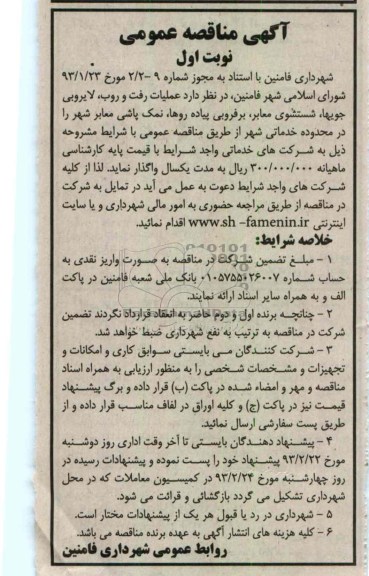 آگهی مناقصه عمومی
نوبت اول
شهرداری فامنین با استناد به مجوز شماره ۹ -۲/۲ مورخ ۹۳/۱/۲۳
شورای اسلامی شهر فامنین، در نظر دارد عملیات رفت و روب، لایروبی
جویها، شستشوی معابر، برفروبی پیاده روها، نمک پاشی معابر شهر را
در محدوده خدماتی شهر از طریق مناقصه عمومی با شرایط مشروحه
ذیل به شرکت های خدماتی واجد شرایط با قیمت پایه کارشناسی
ماهیانه ۳۰۰/۰۰۰/۰۰۰ ریال به مدت یکسال واگذار نماید. لذا از کلیه
شرکت های واجد شرایط دعوت به عمل می آید در تمایل به شرکت
در مناقصه از طریق مراجعه حضوری به امور مالی شهرداری و یا سایت
اینترنتی www.sh -famenin.ir اقدام نمائید.
خلاصه شرایط:
۱ - مبلغ تضمین شرکت در مناقصه به صورت واریز نقدی به
حساب شماره ۰۱۰۵۷۵۵۰۲۶۰۰۷ بانک ملی شعبه فامنین در پاکت
الف و به همراه سایر اسناد ارائه نمایند.
۲ - چنانچه برنده اول و دوم حاضر به انعقاد قرارداد نگردند تضمین
شرکت در مناقصه به ترتیب به نفع شهرداری ضبط خواهد شد.
۳ - شرکت کنندگان می بایستی سوابق کاری و امکانات و
تجهیزات و مشخصات شخصی را به منظور ارزیابی به همراه اسناد
مناقصه و مهر و امضاء شده در پاکت (ب) قرار داده و برگ پیشنهاد
قیمت نیز در پاکت (ج) و کلیه اوراق در لفاف مناسب قرار داده و از
طریق پست سفارشی ارسال نمائید.
۴ - پیشنهاد دهندگان بایستی تا آخر وقت اداری روز دوشنبه
مورخ ۹۳/۲/۲۲ پیشنهاد خود را پست نموده و پیشنهادات رسیده در
روز چهارشنبه مورخ ۹۳/۲/۲۴ در کمیسیون معاملات که در محل
شهرداری تشکیل می گردد بازگشائی و قرائت می شود.
۵ - شهرداری در رد یا قبول هر یک از پیشنهادات مختار است.
۶ - کلیه هزینه های انتشار آگهی به عهده برنده مناقصه می باشد.
روابط عمومی شهرداری فامنین